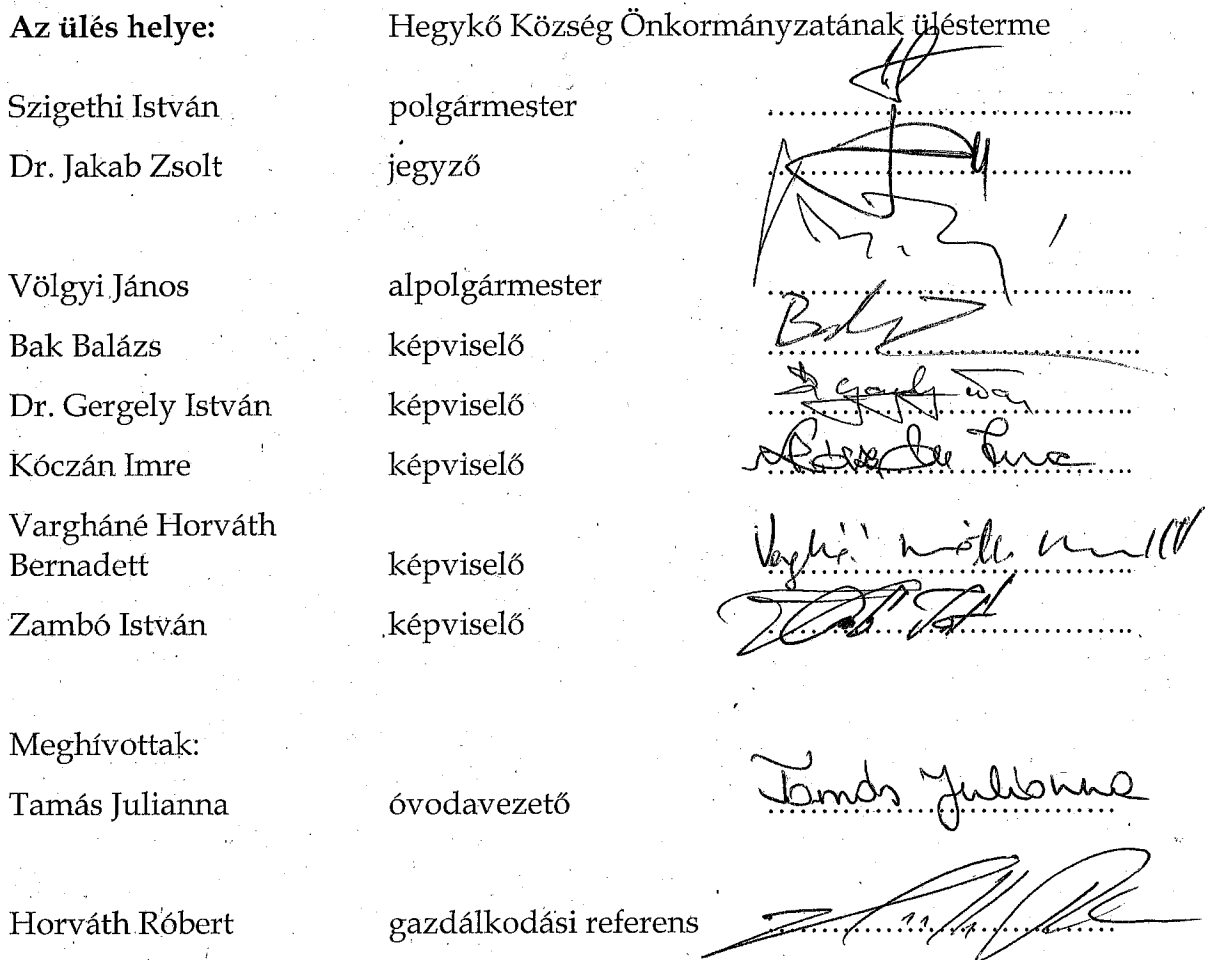 Az ülés helye: Hegykő Község Önkormányzatának ülésterme
Szigethi István polgármester
Dr. Jakab Zsolt jegyző
Völgyi János alpolgármester
Bak Balázs képviselő
Dr. Gergely István képviselő
Kóczán Imre képviselő
Vargháné Horváth
Bernadett képviselő
Zambó István képviselő
Meghívottak:
Tamás Julianna óvodavezető Tamás Julianna
Horváth Róbert gazdálkodási referens